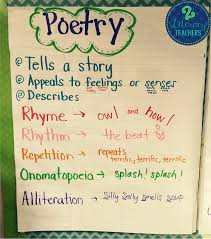 2
Literacy
TEACHERS
Poetry
Tells a story
Appeals to feelings or senses
Describes
Rhyme → owl and how!
Rhythm → the beat
Repetition → repeats
terrific, terrific, terrific
Onomatopoeia → splash! splash!
Alliteration → Silly Sally smells soup